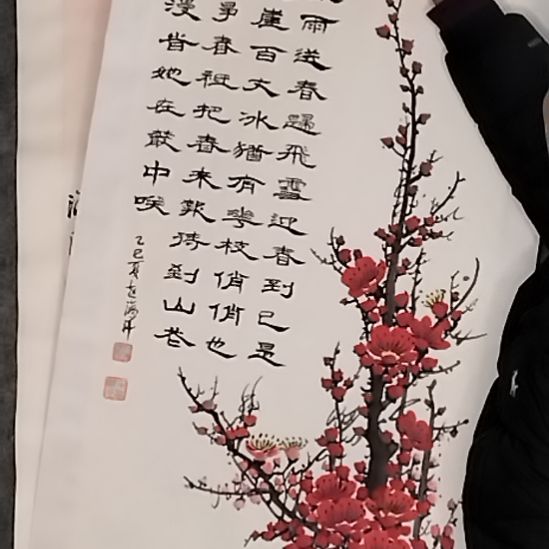 雨送春歸飛雪迎春到已是
崖百丈冰猶有華枝俏俏也
爭春祇把春來報待到山花
漫旹她在叢中咲
乙巳夏